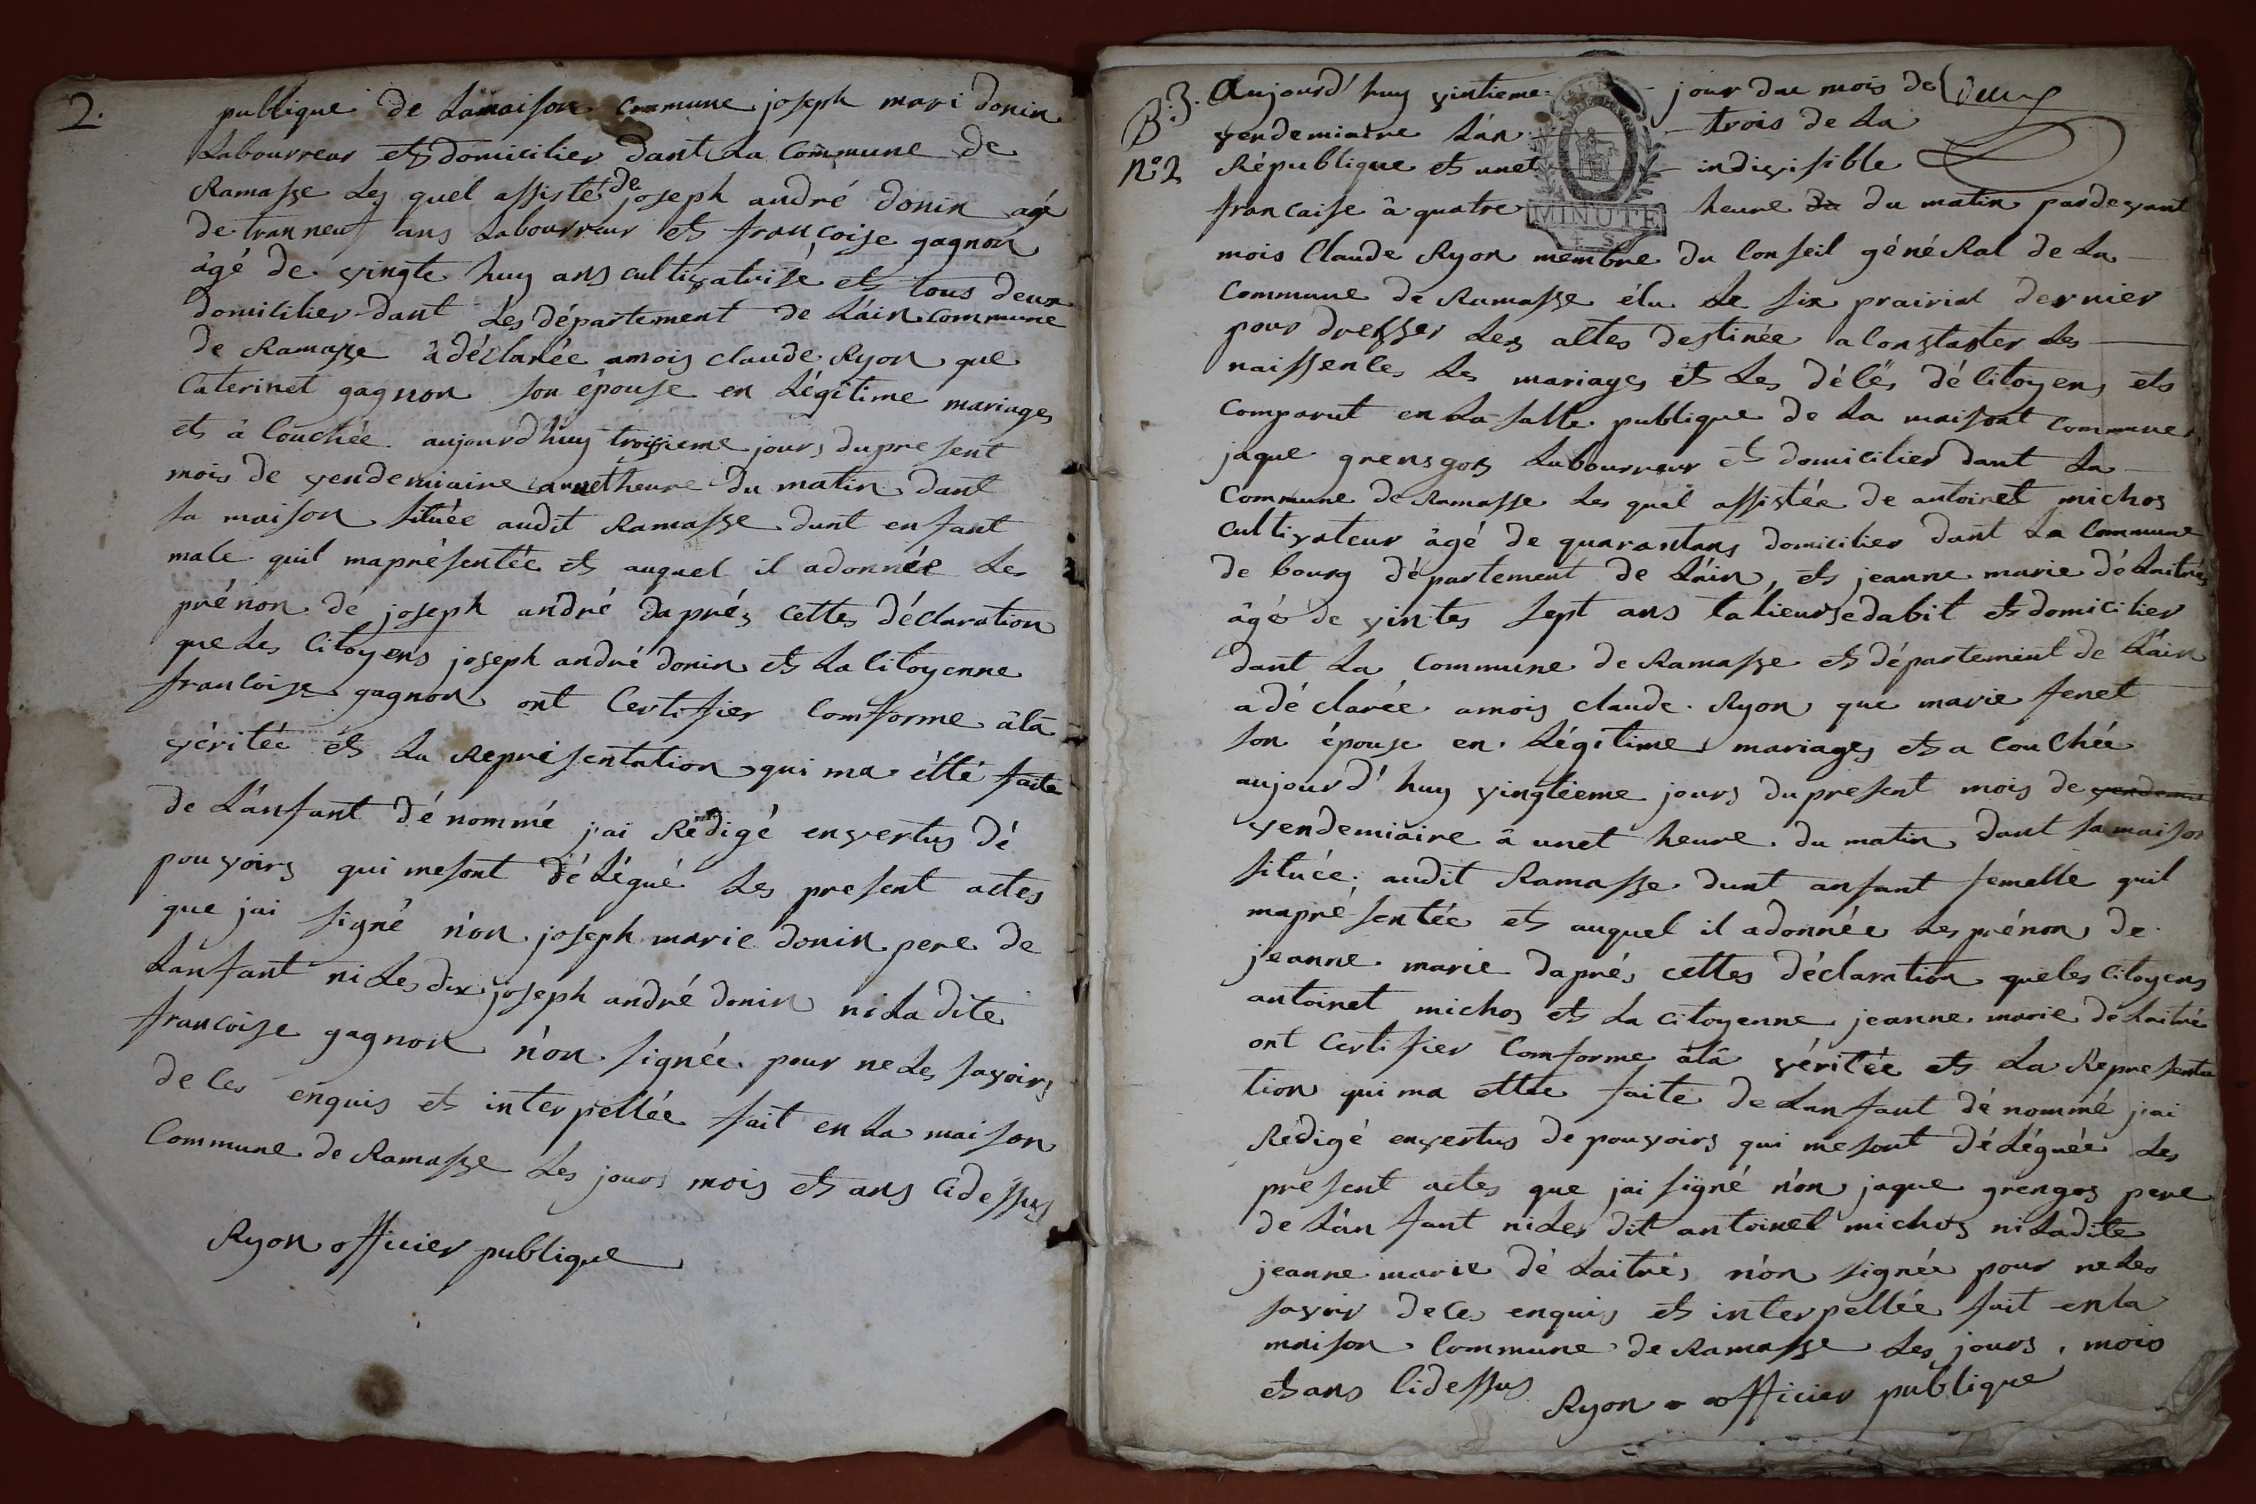 2.
publique de Lamaison commune joseph mari donin
Labourreur et domicilier dant La Commune de
Ramasse Les quel assisté de joseph andré donin agé
de tranneuf ans Labourreur et françoise gagnon
âgé de vingte huy ans cultivatrise et tous deux
domicilier dant Les département de L'ain commune
de Ramasse à déclarée amois claude Ryon que
Caterinet gagnon son épouse en Légitime mariages
et à Couchée aujourd'huy troisieme jours dupresent
mois de vendemiaire aunetheure du matin dant
sa maison située audit Ramasse dunt enfant
male quil maprésentée et auquel il adonnée Les
prénon de joseph andré daprés cettes déclaration
queLes Citoyens joseph andré donin et La Citoyenne
francoise gagnon ont Certifier Comforme àlà
véritée et La Représentation qui ma étté faite
de L'anfant dénommé j'ai Rédigé envertus dé
pouvoirs qui mesont déLégué Les present actes
que jai signé n'on joseph marie donin pere de
Lanfant niLesdix joseph andré donin niLadite
francoise gagnon n'on signée pour neLes savoirs
deCes enquis et interpellée fait enLa maison
Commune de Ramasse Les jours mois et ans Cidessus
Ryon officier publique
B.3.
n°2
Aujourd'huy vintieme jour du mois de
vendemiaire L'an trois de La
République et unet indivisible
francaise à quatre heure du du matin pardevant
MINUTE
mois Claude Ryon membre du Conseil généRal de La
Commune de Ramasse élu Le six prairial dernier
pour dresser Les altes destinée a Constater Les
naissences Les mariages et Les décés déCitoyens et
Comparut enLa salle publique de La maisont Commune
jaque grensgos Labourreur et domicilier dant La
Commune de Ramasse Les quél assistée de antoinet michos
Cultivateur âgé de quarantans domicilier dant La Commune
de bourg département de L'ain, et jeanne marie déLaitrés
âgé de vintes sept ans talieursedabit et domicilier
dant La Commune de Ramasse et département de L'ain
adéclarée amois claude Ryon que marie fenet
son épouse en Légitime mariages et a Couchée
aujourd'huy vingtieme jours dupresent mois de
vendemiaire à unet heure du matin dant sa maison
située audit Ramasse dunt anfant femelle quil
maprésentée et auquel il adonnée Les prénon de
jeanne marie daprés cettes déclaration queles Citoyens
antoinet michos et La citoyenne jeanne marie déLaitré
ont Certifier Comforme àlà véritée et La Representa
tion qui ma ettée faite deLanfant dénommé j'ai
Rédigé envertus de pouvoirs qui mesont déLéguée Les
présent actes que jai signé n'on jaque grengos pere
de L'anfant niLes dit antoinet michos niLadite
jeanne marie déLaitrés n'on signée pour neLes
savoir deCes enquis et interpellée fait enLa
maison Commune de Ramasse Les jours, mois
et ans Cidessus Ryon officier publique